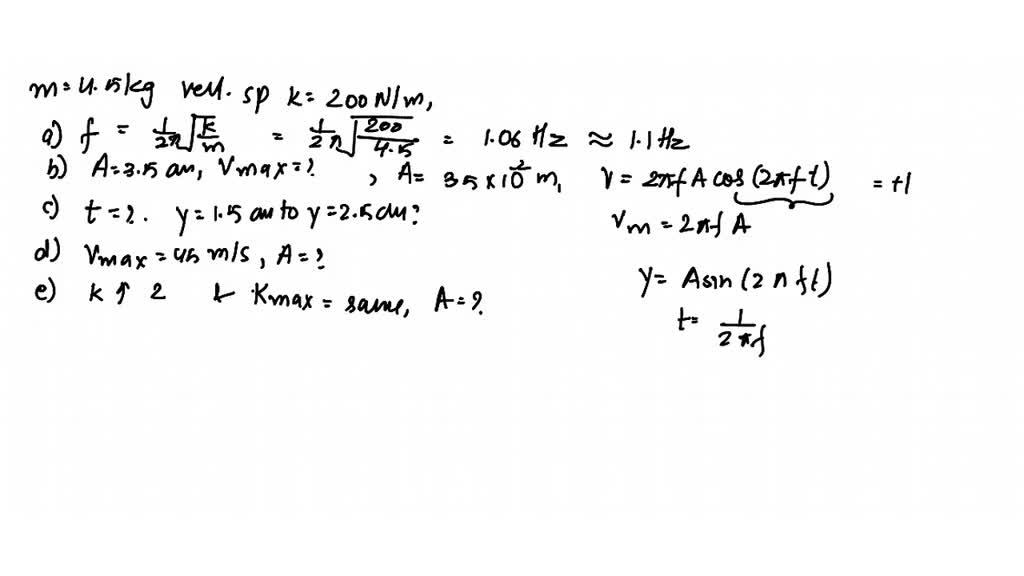 m = 4.5 kg vert. sp k = 200 N/m,
a) f = 1/2π √k/m = 1/2π √200/4.5 = 1.06 Hz ≈ 1.1 Hz
b) A = 3.5 cm, Vmax = ? , A = 3.5 × 10⁻² m, V = 2πf A cos (2πft) = ±1
Vm = 2πf A
c) t = ?. y = 1.5 cm to y = 2.5 cm?
d) Vmax = 45 m/s, A = ?
e) k ↑ 2 & Kmax = same, A = ?
y = A sin (2πft)
t = 1/2πf